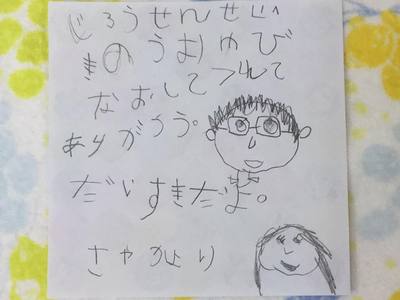 じろうせんせい
きのうおゆび
なおしてつれて
ありがうう。
だいすきだよ。
さやかより